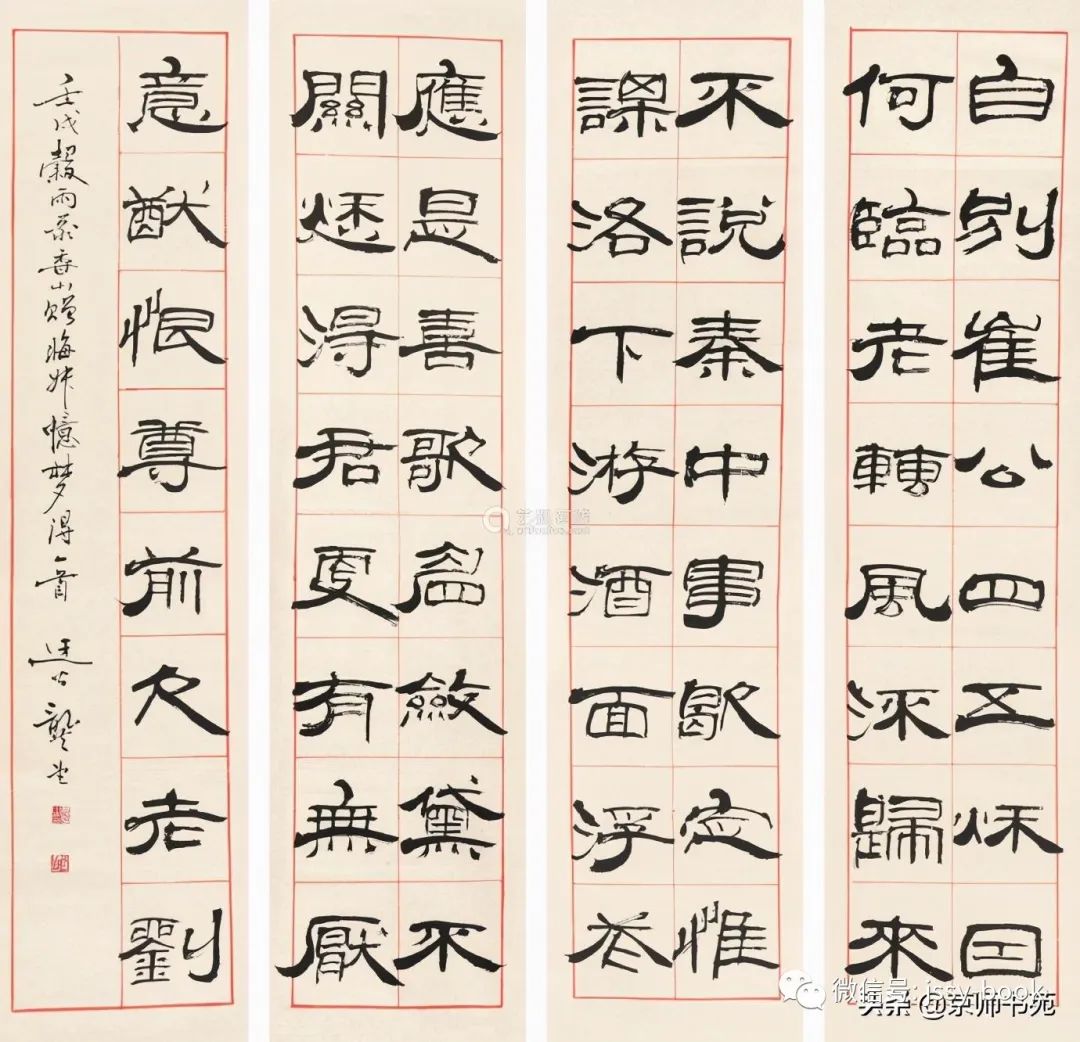 自别崔公四五秌因
何臨老轉風流歸來
不說秦中事歇定惟
謀洛下游酒面浮花
應是喜歌眉斂黛不
關愁得君更有無厭
意猷恨尊前欠老劉
壬戌穀雨录香山贈晦叔憶梦得一首 迂公龔望
微信号: jssy-book
头条 @京师书苑